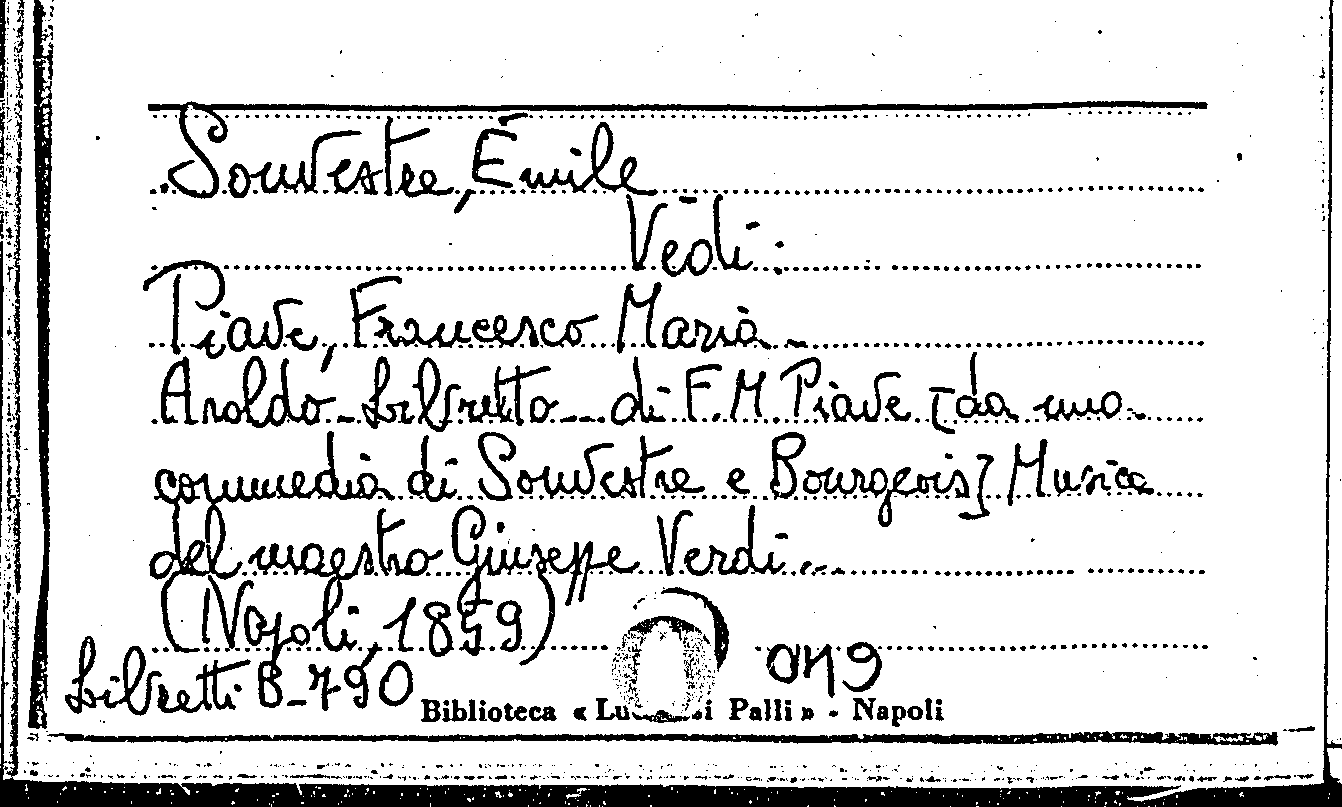 Souvestre, Émile
Vedi:
Piave, Francesco Maria..
Aroldo-Libretto... di F.M Piave [da una
commedia di Souvestre e Bourgeois] Musica
del maestro Giuseppe Verdi...
(Napoli, 1859)
Libretti B-790
Biblioteca « Lu i Palli » - Napoli